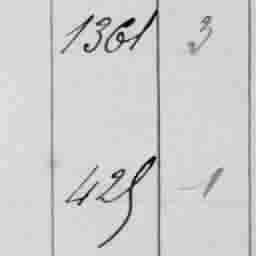 1361 3
425 -1